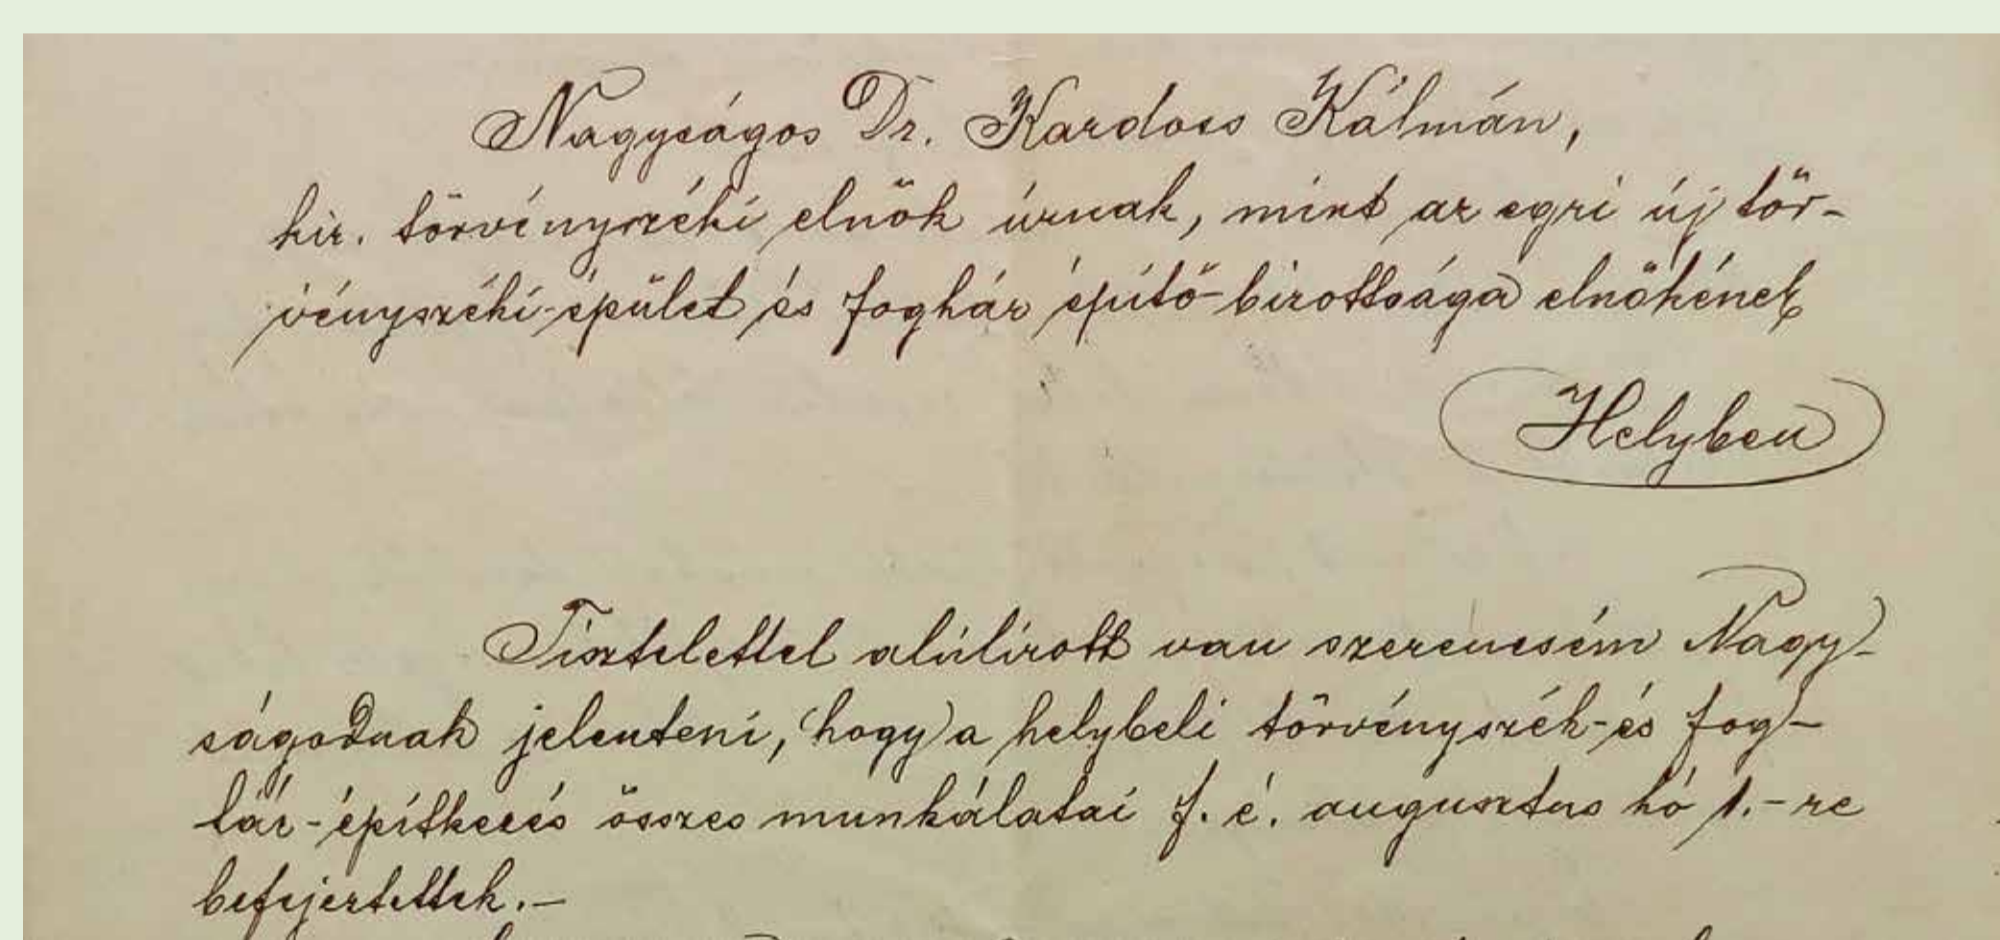 Nagyságos Dr. Kardoss Kálmán,
kir. törvényszéki elnök úrnak, mint az egri új tör-
vényszéki-épület és fogház építő-bizottsága elnökének
Helyben
Tisztelettel alúlírott van szerencsém Nagy-
ságodnak jelenteni, hogy a helybeli törvényszék-és fog-
ház-építkezés összes munkálatai f. é. augusztus hó 1.-re
befejeztettek.-